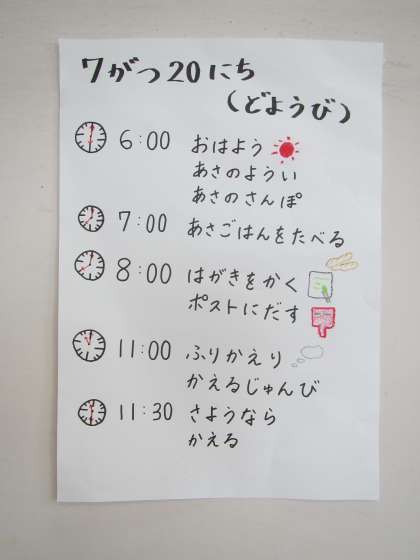 7がつ20にち
(どようび)
6:00 おはよう
あさのようい
あさのさんぽ
7:00 あさごはんをたべる
8:00 はがきをかく
ポストにだす
11:00 ふりかえり
かえるじゅんび
11:30 さようなら
かえる